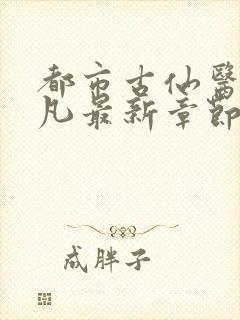 都市古仙醫
凡最新章節
成胖子